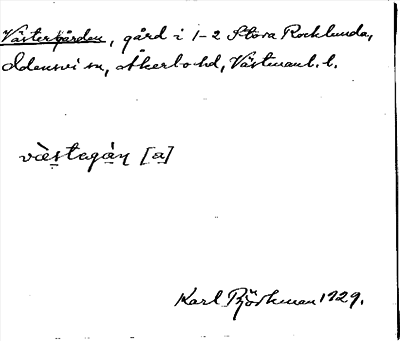 Västergården, gård i 1-2 Stora Rocklunda,
Odensvi sn, Åkerbo hd, Västmanl. l.
väs̱tega̱ṉ [a̱]
Karl Björkman 1929.